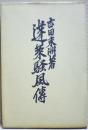 吉田東洲著
蓬萊驟風傳